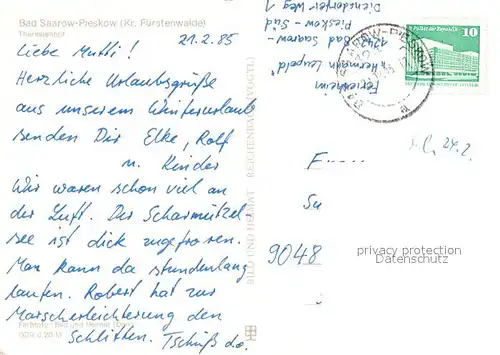 Bad Saarow-Pieskow (Kr. Fürstenwalde)
Theresienhof
21.2.85
Liebe Mutti!
Herzliche Urlaubsgrüße
aus unserem Winterurlaub
senden Dir Elke, Rolf
u. Kinder
Wir waren schon viel an
der Luft. Der Scharmützel
see ist dick zugefroren.
Man kann da stundenlang
laufen. Robert hat zur
Marscherleichterung den
Schlitten. Tschüß
Farbfoto: Bild und Heimat
BILD UND HEIMAT REICHENBACH (VOGTL)
Ferienheim
"Hermann Leupold"
1242 Bad Saarow-
Pieskow - Süd
Diensdorfer Weg 1
Palast der Republik
10
SAAROW-PIESKOW
24.2.
F
9048
privacy protection
Datenschutz